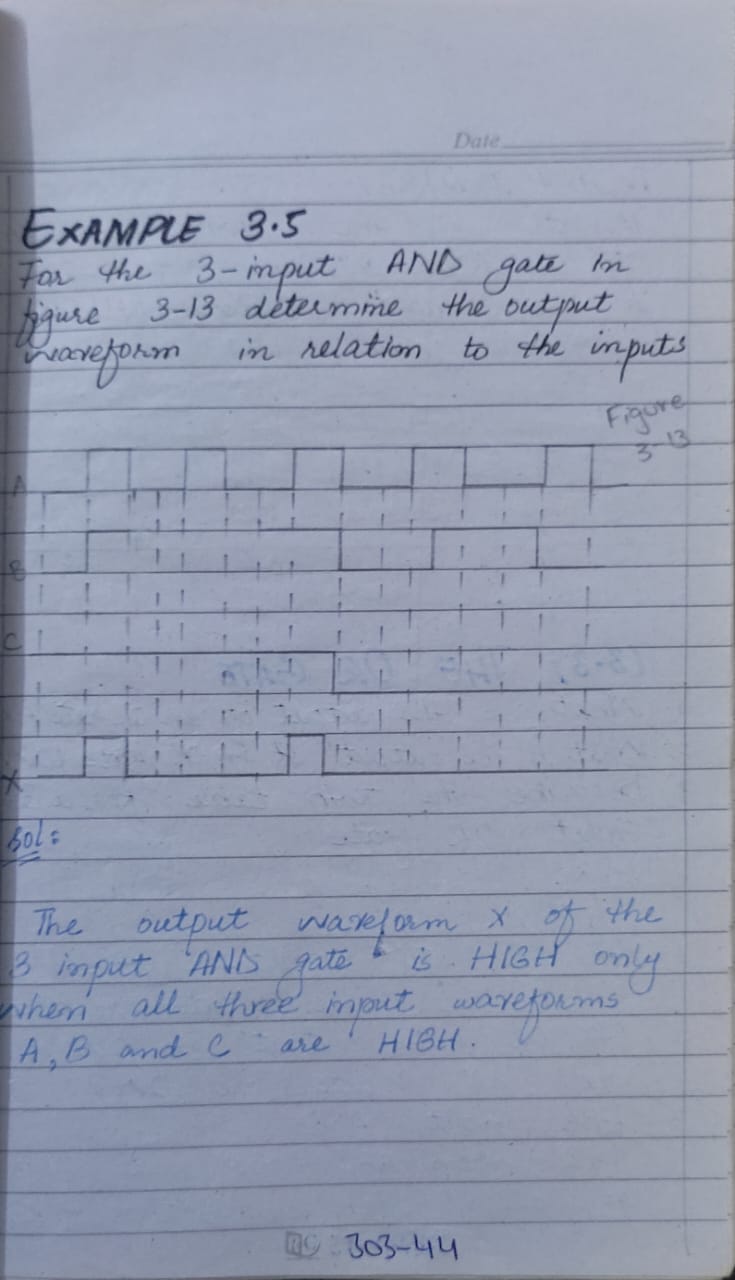 Date
EXAMPLE 3.5
For the 3-input AND gate in
figure 3-13 determine the output
waveform in relation to the inputs
Figure
3-13
A
B
C
X
Sol:
The output waveform X of the
3 input AND gate is HIGH only
when all three input waveforms
A, B and C are HIGH.
303-44